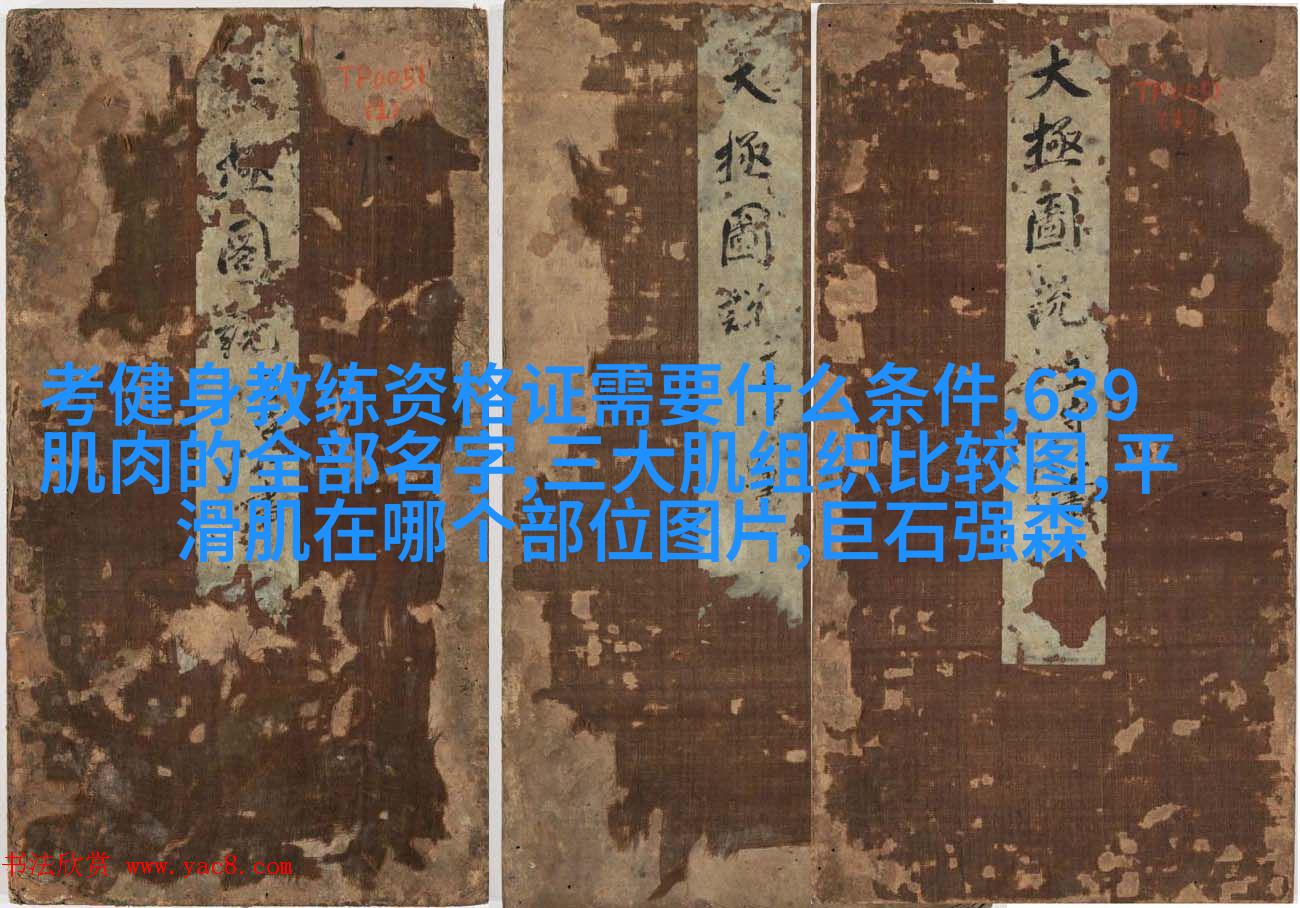 TP0051
(1)
極圖說
大極圖說
大極圖説
考健身教练资格证需要什么条件,639
肌肉的全部名字,三大肌组织比较图,平
滑肌在哪个部位图片,巨石强森
书法欣赏 www.yac8.com